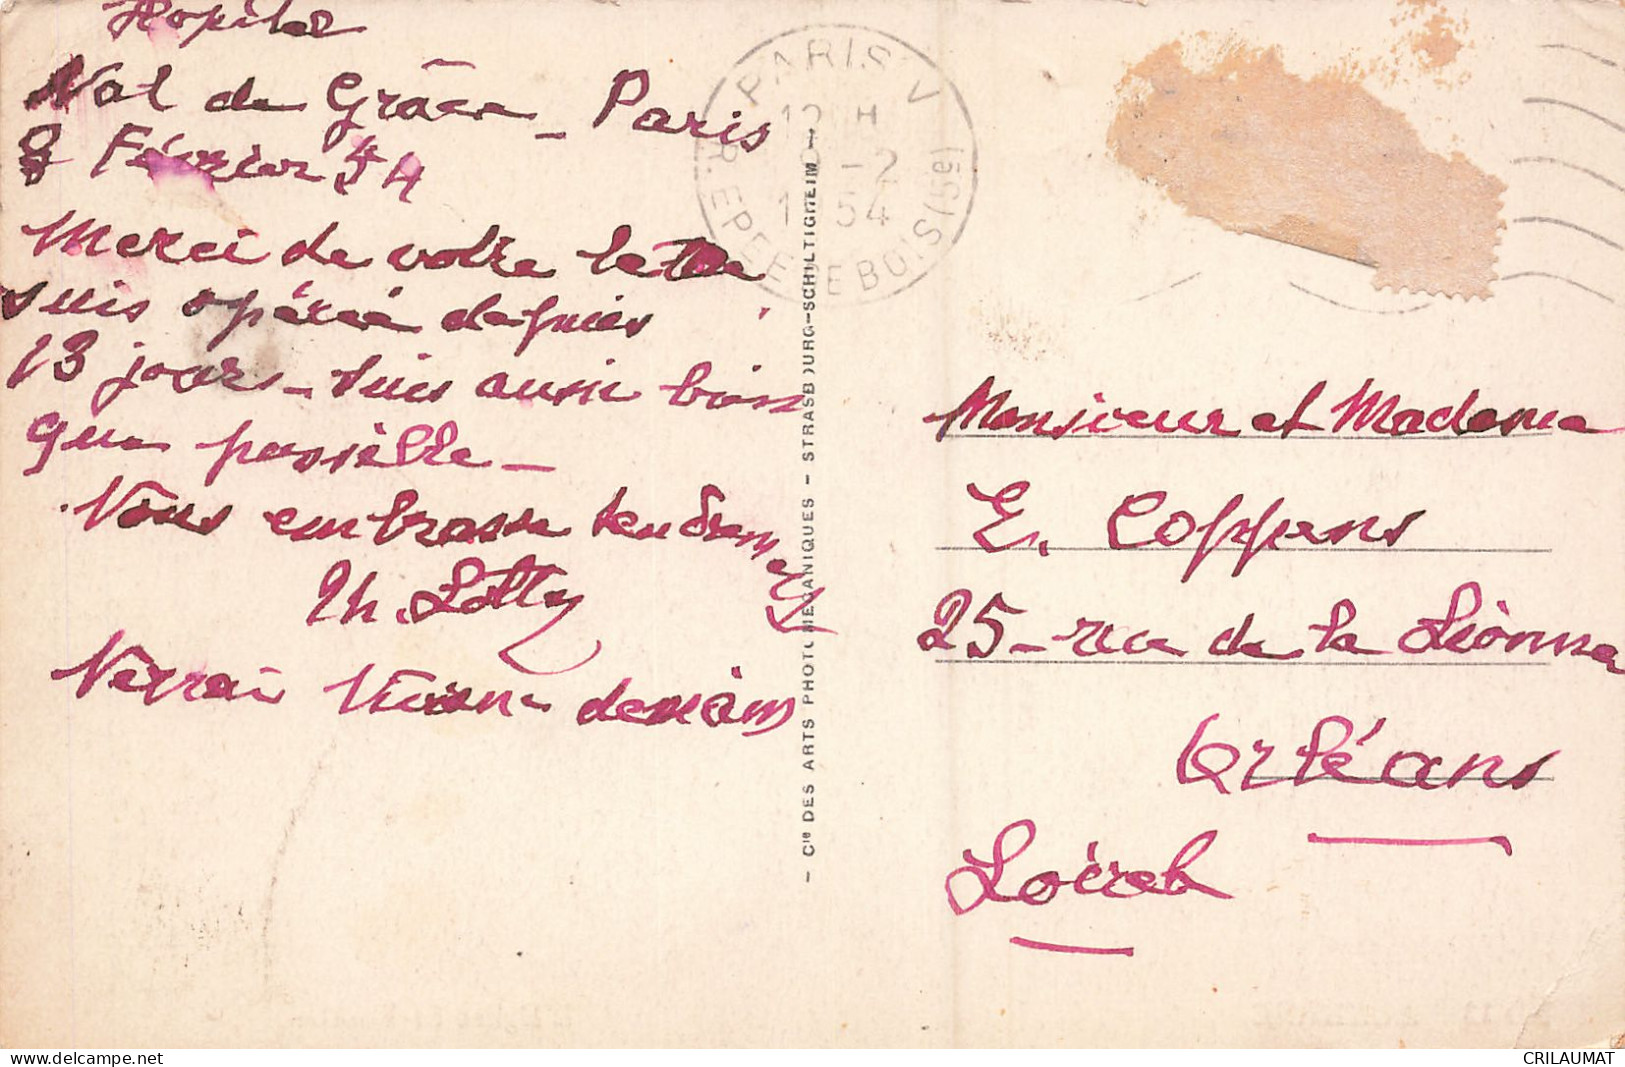 Hopital
Val de Grâce - Paris
8 Février 54
Merci de votre lettre
suis opéré depuis
13 jours - suis aussi bien
que possible -
Vous embrasse tendrement
Th. Lotty
Verrai Viviane demain
PARIS V
12H
-2
1954
R. EPEE DE BOIS (5e)
- Cie DES ARTS PHOTOMECANIQUES - STRASBOURG-SCHILTIGHEIM -
Monsieur et Madame
E. Coppens
25 - rue de la Lionne
Orléans
Loiret
CRILAUMAT